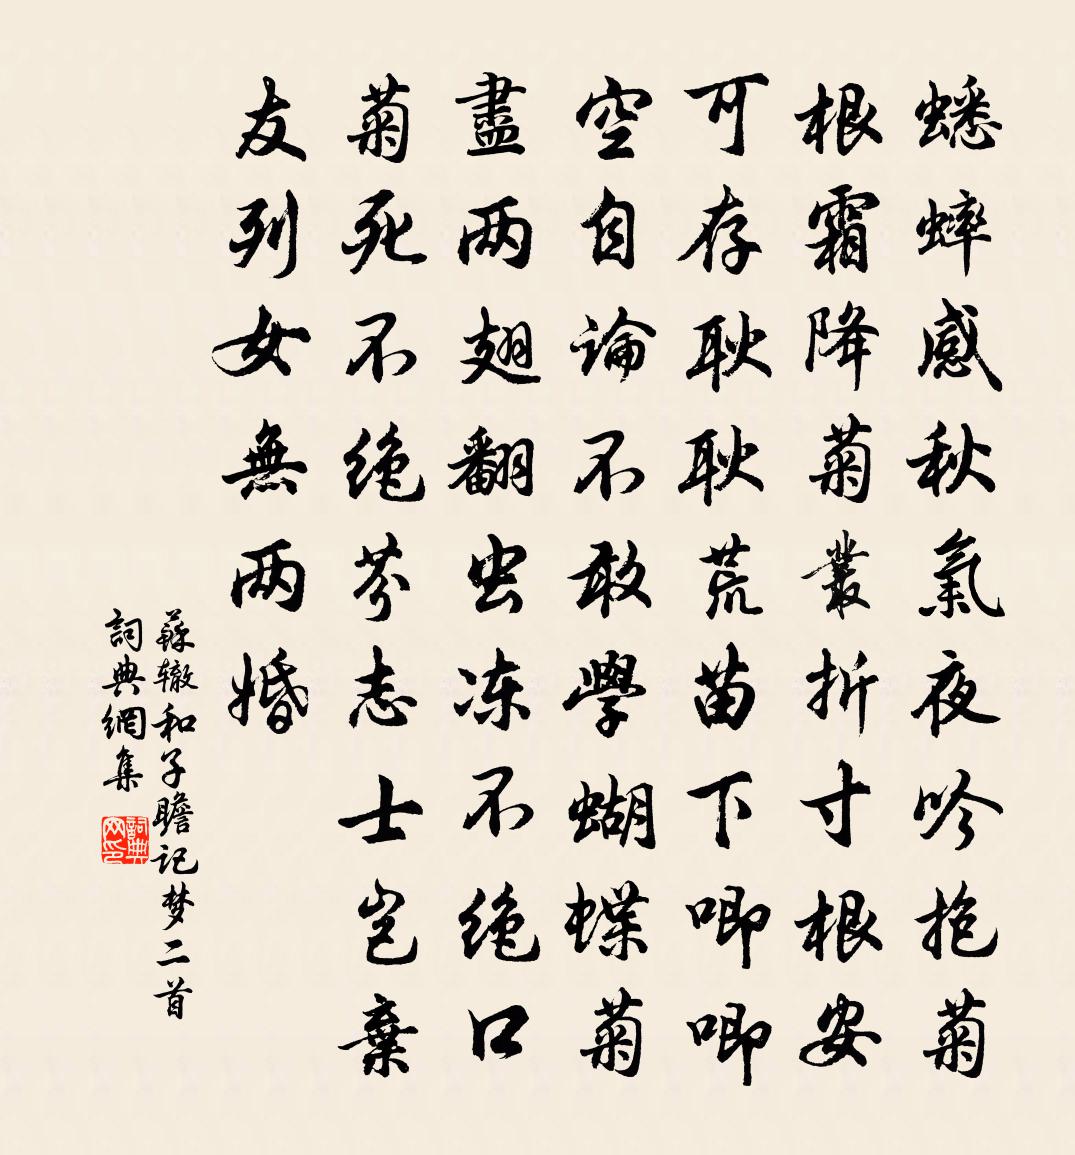 蟋蟀感秋氣夜吟抱菊
根霜降菊叢折寸根安
可存耿耿荒苗下唧唧
空自論不敢學蝴蝶菊
盡两翅翻虫冻不绝口
菊死不绝芬志士岂棄
友列女無两婚
蘇辙和子瞻记梦二首
詞典網集
詞典
网印